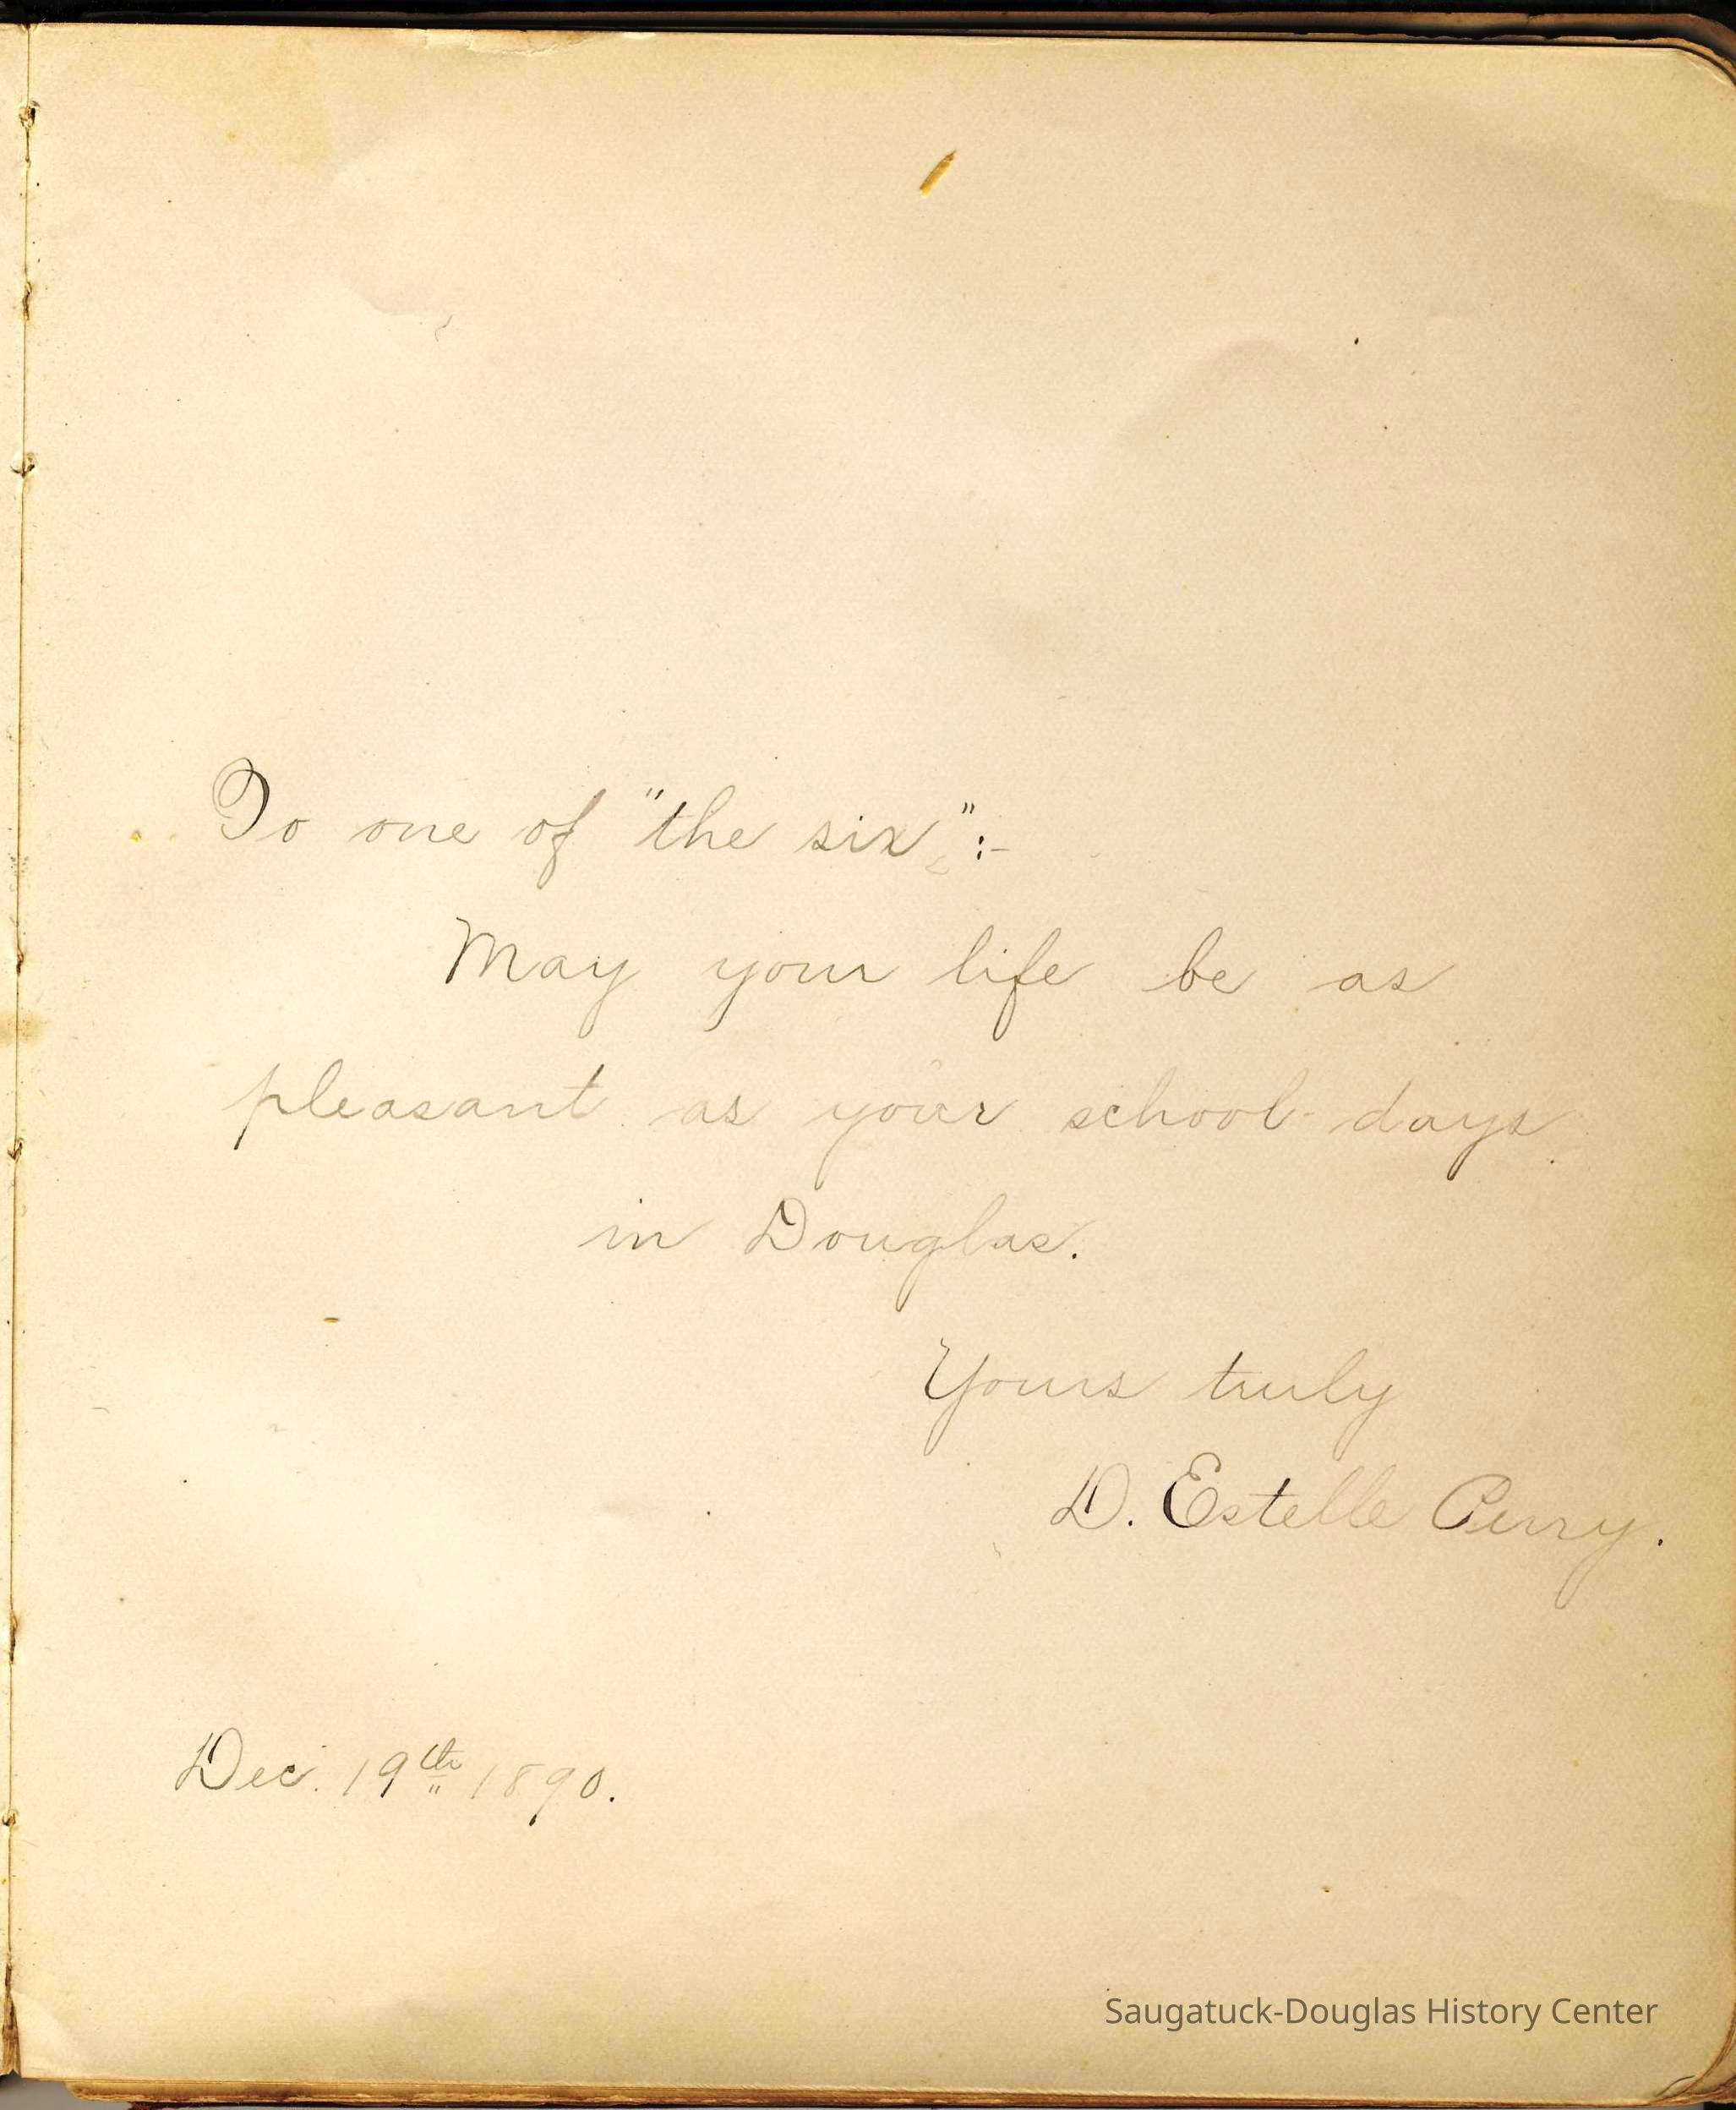 To one of "the six":-
May your life be as
pleasant as your school-days
in Douglas.
Yours truly
D. Estelle Perry.
Dec. 19th 1890.
Saugatuck-Douglas History Center